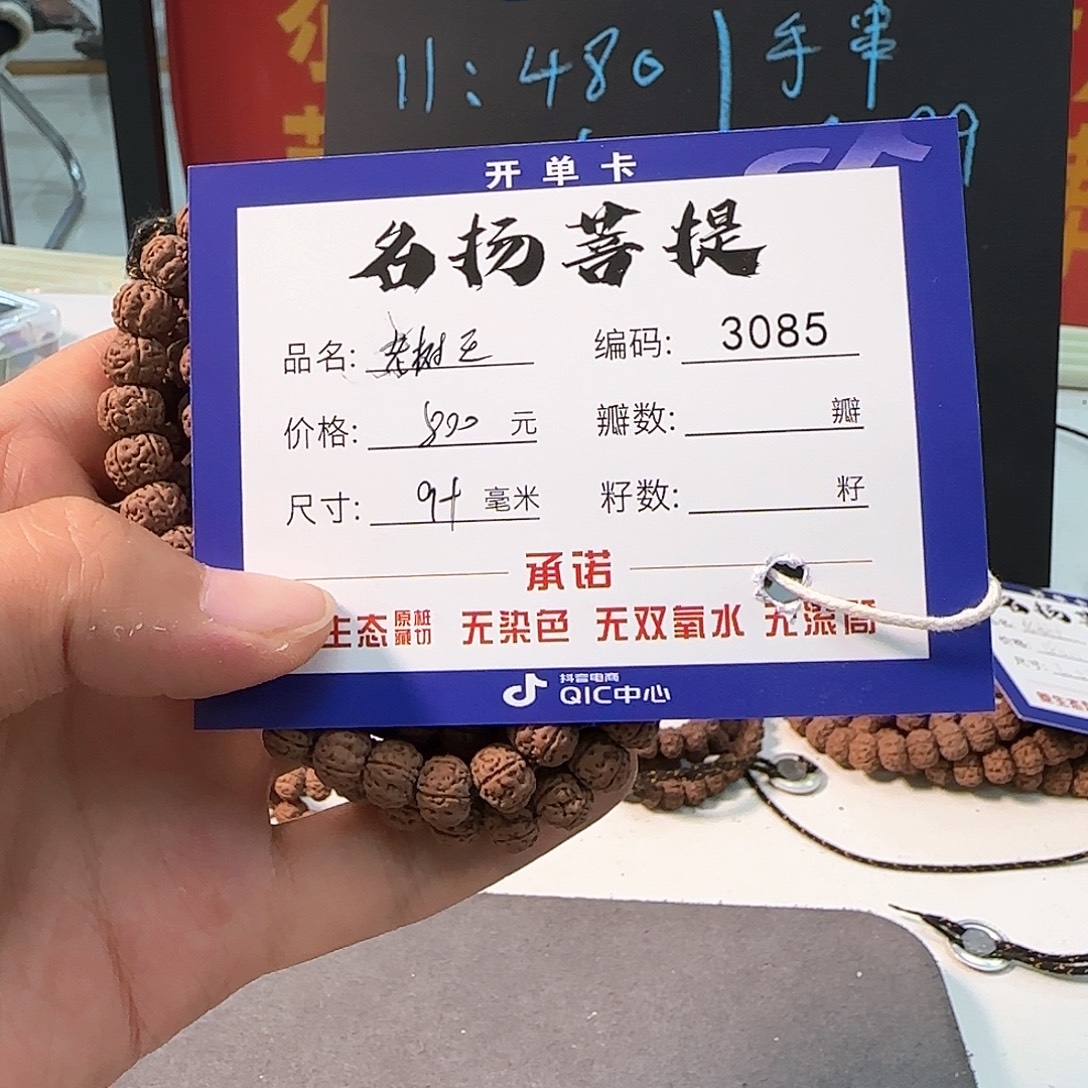 11:480 手串
开单卡
名扬菩提
品名: 老树王 编码: 3085
价格: 890 元 瓣数: 瓣
尺寸: 9+ 毫米 籽数: 籽
承诺
生态 原桩藏切 无染色 无双氧水 无滚筒
抖音电商
QIC中心